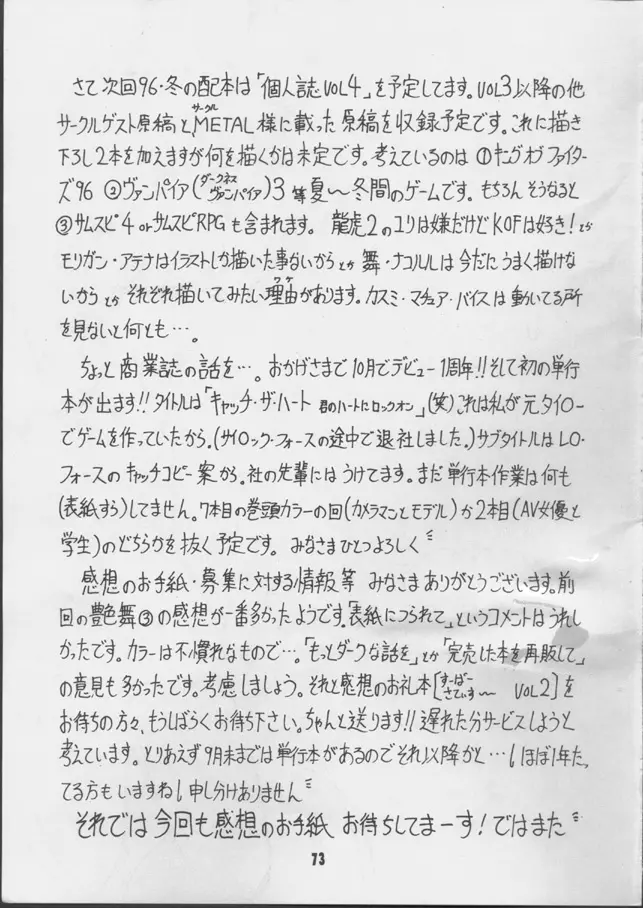 さて次回96・冬の配本は「個人誌VOL4」を予定してます。VOL3以降の他
サークルゲスト原稿と、METAL様に載った原稿を収録予定です。これに描き
サークル
下ろし2本を加えますが何を描くかは未定です。考えているのは ①キングオブファイター
ズ96 ②ヴァンパイア(ダークネス ヴァンパイア)3 等夏〜冬間のゲームです。もちろんそうなると
③サムスピ4 orサムスピRPGも含まれます。 龍虎2のユリは嫌だけどKOFは好き!とか
モリガン・アテナはイラストしか描いた事ないからとか 舞・ナコルルは今だにうまく描けな
いからとか それぞれ描いてみたい理由があります。カスミ・マチュア・バイスは動いてる所
ワケ
を見ないと何とも…。
ちょっと商業誌の話を…。おかげさまで10月でデビュー1周年!!そして初の単行
本が出ます!!タイトルは「キャッチ・ザ・ハート 君のハートにロックオン」(笑)これは私が元タイロー
でゲームを作っていたから。(サイロック・フォースの途中で退社しました。)サブタイトルはLO・
フォースのキャッチコピー案から。社の先輩にはうけてます。まだ単行本作業は何も
(表紙すら)してません。7本目の巻頭カラーの回(カメラマンとモデル)か2本目(AV女優と
学生)のどちらかを抜く予定です。 みなさまひとつよろしく
感想のお手紙・募集に対する情報等 みなさまありがとうございます。前
回の艶色舞③の感想が一番多かったようです。「表紙につられて」というコメントはうれし
かったです。カラーは不慣れなもので…。「もっとダークな話を」とか「完売した本を再販して」
の意見も多かったです。考慮しましょう。それと感想のお礼本[すーぱー さでぃすー〜 VOL2]を
お待ちの方々、もうしばらくお待ち下さい。ちゃんと送ります!!遅れた分サービスしようと
考えています。とりあえず9月末までは単行本があるのでそれ以降かと…(ほぼ1年た
てる方もいますね)申し分けありません
それでは今回も感想のお手紙 お待ちしてまーす!ではまた
73